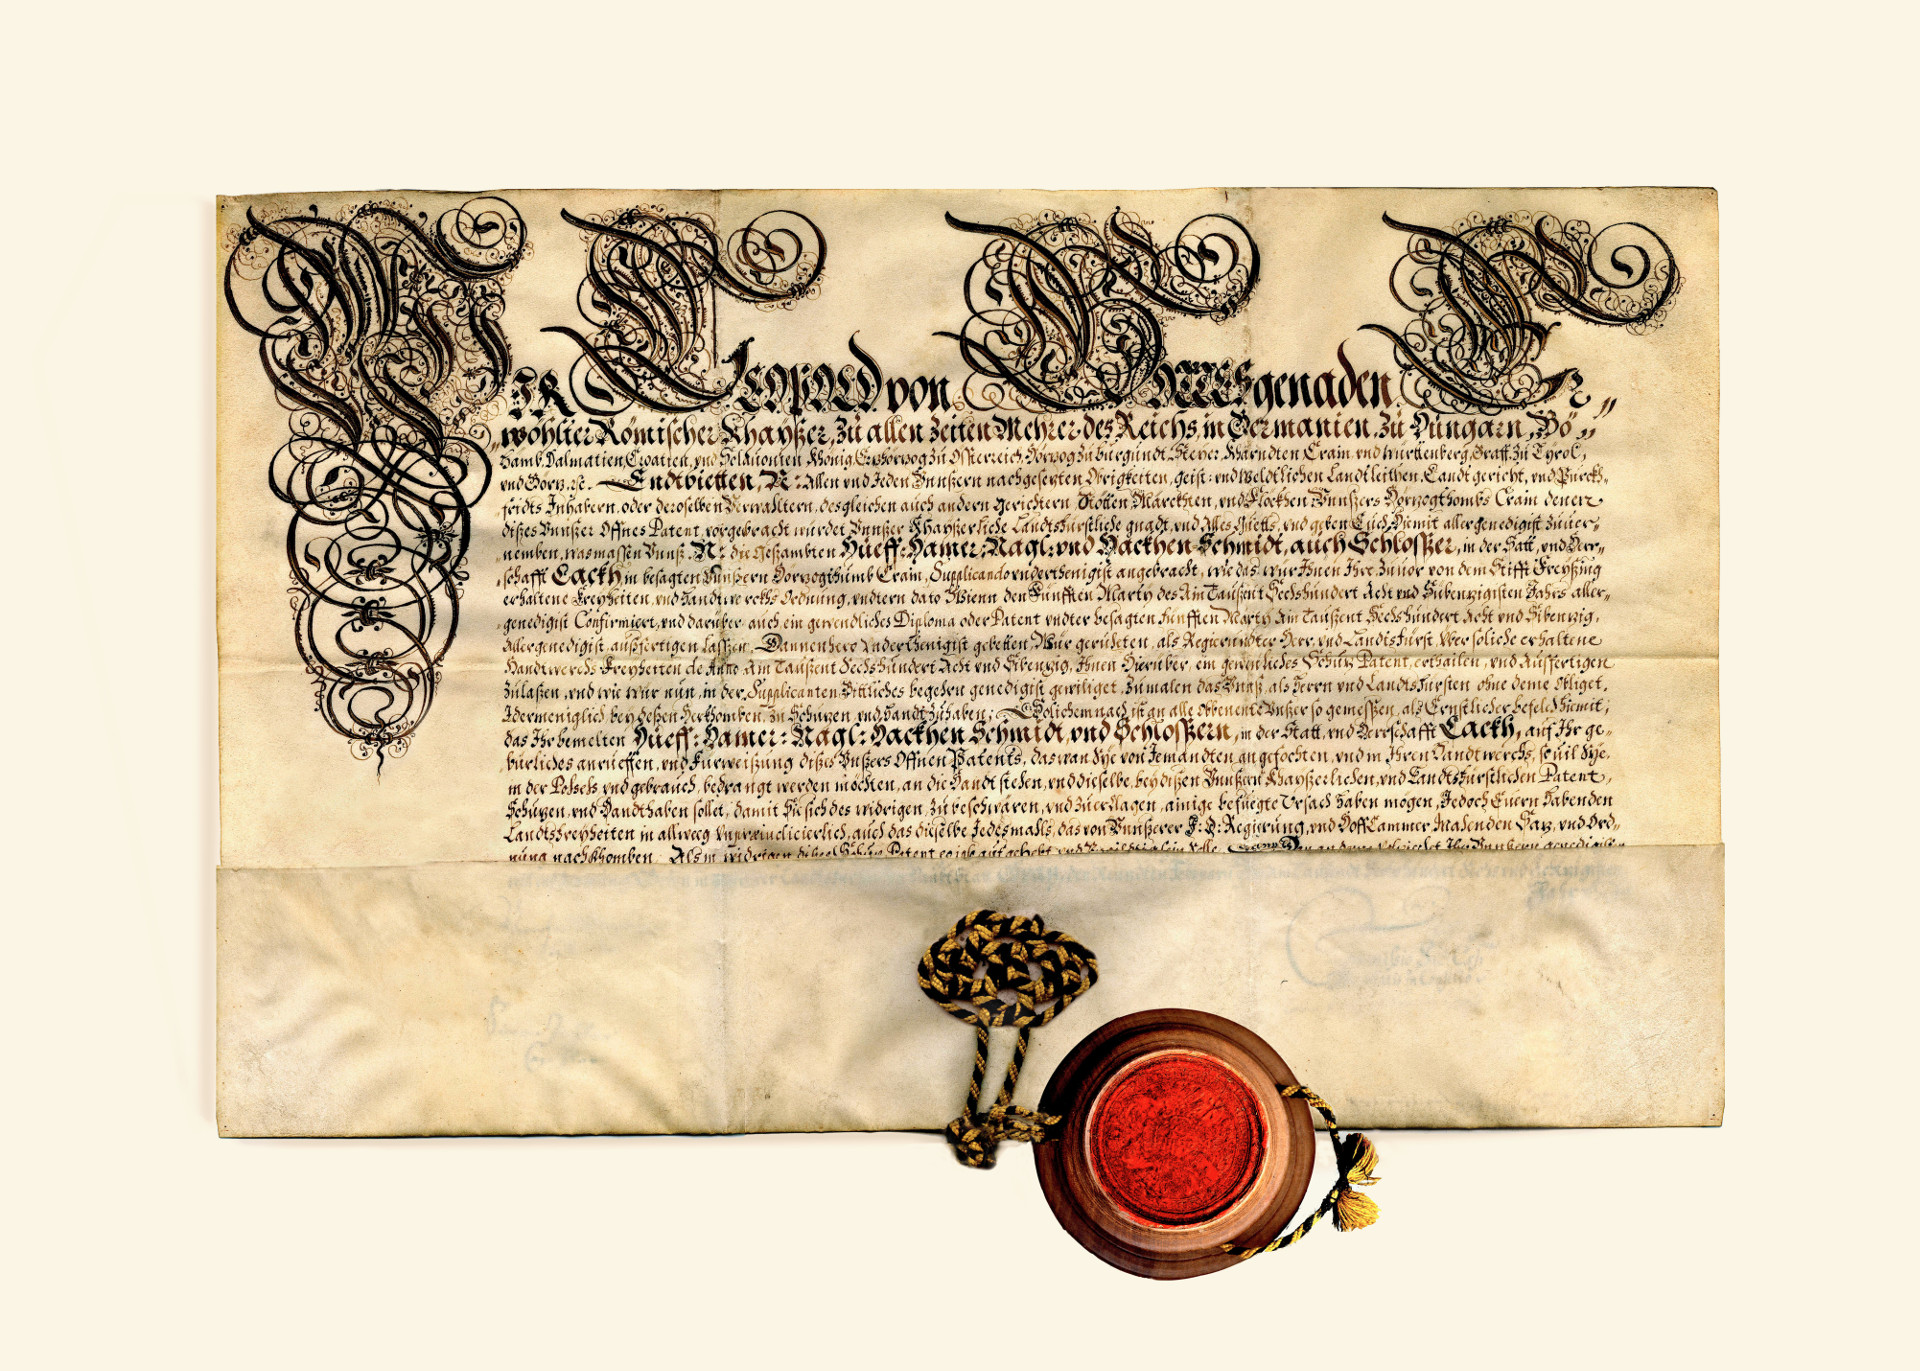 WIR LEOPOLD von GOTTES genaden Er„
„wöhlter Römischer Khayßer, zu allen Zeiten Mehrer des Reichs, in Germanien, zu Hungarn, Bö„
haimb, Dalmatien, Croatien, und Sclauonien König, Erzherzog zu Össterreich, Herzog zu Burgundt, Steyer, Khärndten, Crain, und Württenberg, Graff zu Tyrol,
und Görz. etc. Endtbietten, N: Allen und Jeden Vnnßern nachgesezten Obrigkeiten, geist: und Weldtlichen Landtleithen, Landtgericht, und Purckh„
fridts Inhabern, oder deroselben Verwaltern, desgleichen auch andern Gerichtern, Stötten, Marckhten, und Fleckhen Vnnßers Herzogthombs Crain, denen
dißes Vnnßer Offnes Patent vorgebracht würdet, Vnnßer Khayßerliche Landtsfürstliche gnadt, und Alles guetts, und geben Euch hiemit allergenedigist zuuer„
nemben, wasmassen Vnnß N: die Gesambten Hueff: Hamer: Nagl: und Hackhen Schmidt, auch Schlosser, in der Statt, und Herr„
„schafft Lackh, in besagten Vnnßern Herzogthumb Crain, Supplicando underthenigist angebracht, wie das wür Ihnen Ihre zuuor von dem Stifft Freyßing
erhaltene Freyheiten, und Handtwerckhs Ordnung, undtern dato Wienn den Fünfften Marty des Ain Taußent Sechshundert Acht und Sibenzigisten Jahrs aller„
„genedigist Confirmiert, und darüber auch ein gewendliches Diploma oder Patent undter besagten fünfften Marty Ain Taußent Sechshundert Acht und Sibenzig,
Allergenedigist außfertigen lassen. Dannenhero Underthenigist gebetten, Wür geruheten, als Regierundter Herr, und Landtsfürst, über soliche erhaltene
Handtwerchs Freyheiten de Anno Ain Taußent Sechshundert Acht und Sibenzig, Ihnen hierüber, ein gewenliches Schuz Patent, erthailen, und Aussfertigen
zulaßen, und wie wür nun, in der Supplicanten, Bittliches begehrn genedigist gewiliget, zumalen das Vnnß, als Herrn und Landtsfürsten ohne deme Obliget,
Idermeniglich bey deßen herkhomben, zu Schuzen, und handtzuhaben; Solichemnach ist an alle obbenente Vnnßer so gemeßßen, als Ernstlicher befelch hiemit,
das Ihr bemelten Hueff: Hamer: Nagl: Hackhen Schmidt, und Schlossern, in der Statt, und Herrschafft Lackh, auf Ihr ge„
bürliches anrueffen, und Fürweißung dißes Vnßers Offnen Patents, das wan Sye von Jemandten angefochten, und in Ihren Handtwerchs, so uil Sye,
in der Possess und gebrauch, bedrangt werden möchten, an die Handt stehen, und dieselbe, bey dißen Vnnßern Khayßerlichen, und Landtsfürstlichen Patent,
Schuzen, und Handthaben sollet, damit Sie sich des widrigen, zu beschwären, und zuerclagen, ainige befuegte Ursach haben mögen, Jedoch Euern habenden
Landtsfreyheiten in allweeg vnpraeiudicierlich, auch das dieselbe Jedesmalls, das von Vnnßerer I: Ö: Regierung, und Hoff Cammer, Machenden Saz, und Ord„
nung nachkhomben. Als in widrigen dises Schuz Patent